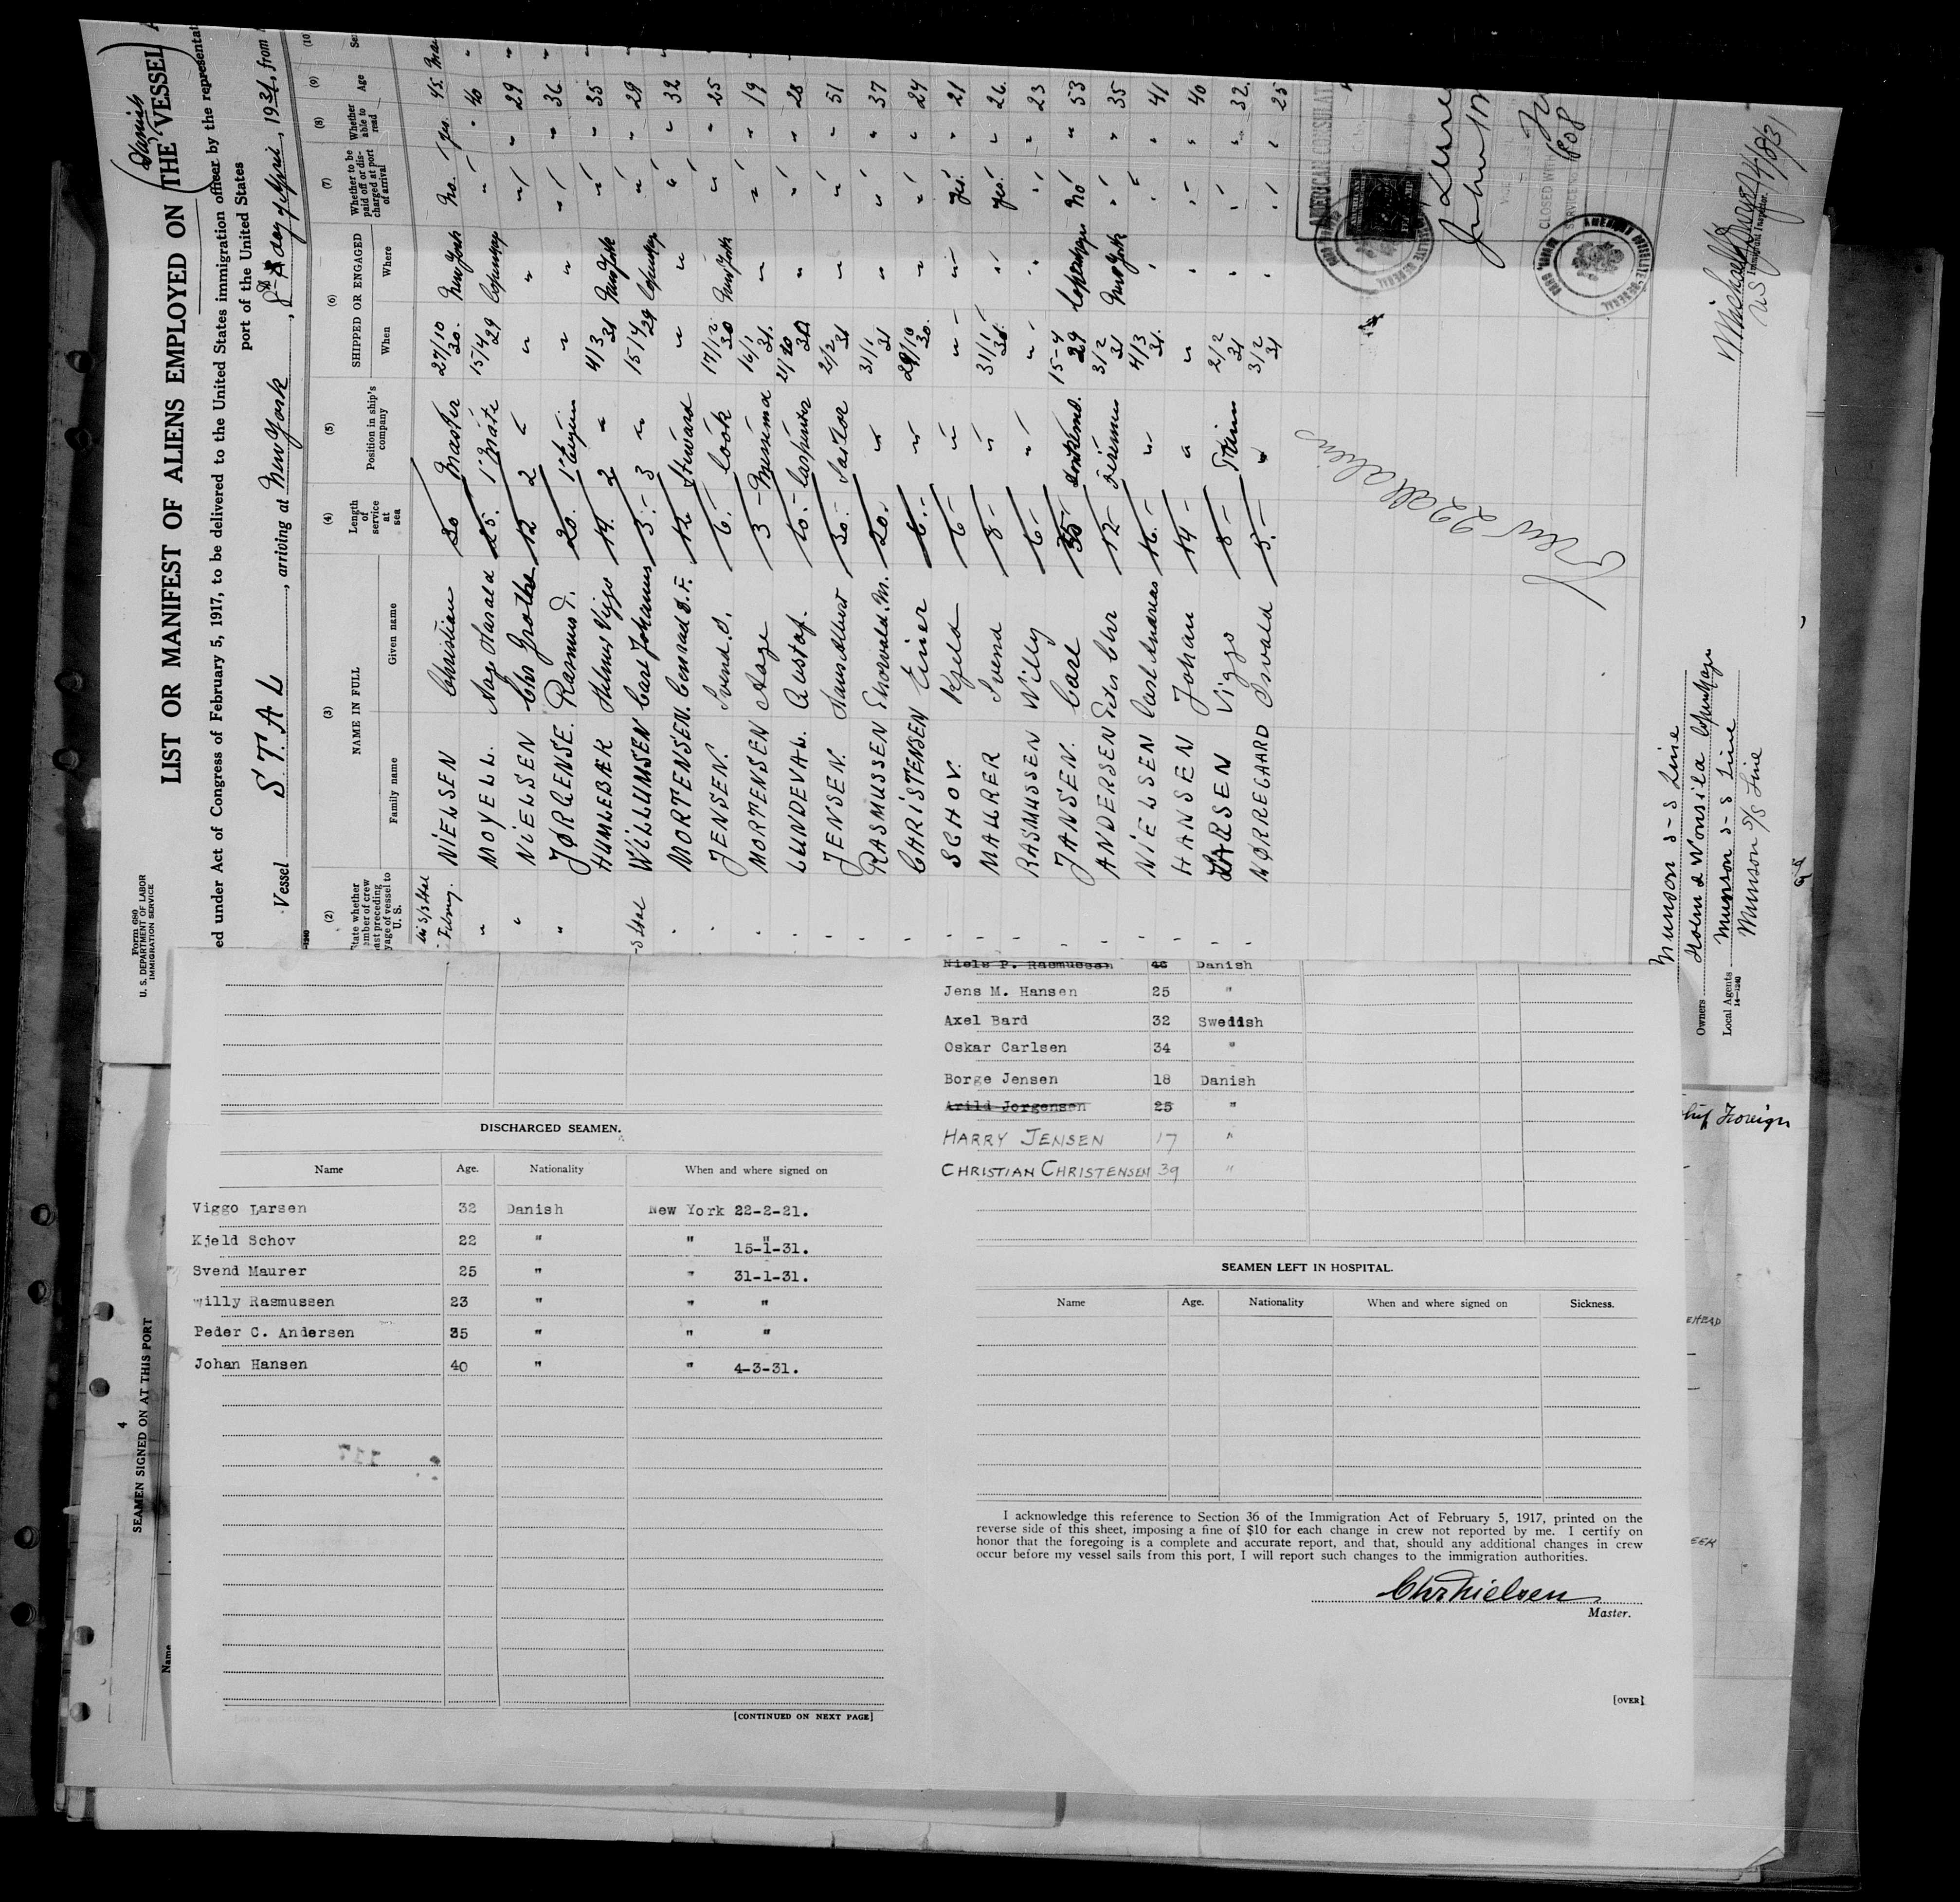 Form 680
U. S. DEPARTMENT OF LABOR
IMMIGRATION SERVICE
LIST OR MANIFEST OF ALIENS EMPLOYED ON THE VESSEL
Danish
ed under Act of Congress of February 5, 1917, to be delivered to the United States immigration officer by the representat
port of the United States
Vessel STAL, arriving at New York, 8th day of April, 1931, from
(2) (3) (4) (5) (6) (7) (8) (9) (10)
NAME IN FULL
SHIPPED OR ENGAGED
Family name Given name
Length of service at sea
Position in ship's company
When Where
Whether to be paid off or discharged at port of arrival
Whether able to read
Age
NIELSEN Christian 30 Master 27/10 30. New York No. yes. 45.
MOYELL. Aage Harald 25. 1 Mate 15/4 29 Copenhag " " 40
NIELSEN Chr Grothe 12 2 " " " " " 29
JØRGENSE. Rasmus J. 20. 1 " " " " 36
HUMLEBÆK Helmer Viggo 14. 2 " 4/3 31 New York " " 35
WILLUMSEN Carl Johannes 3.- 3 " 15/4 29 Copenhag " " 29
MORTENSEN. Conrad S.F. 12 Steward " " " " 32
JENSEN. Svend.O. 6.- Cook 17/12 30 New York " " 25
MORTENSEN Aage 3 - 16/1 31. " " " 19
LUNDEVAL. Gustaf. 10.- Carpenter " " " 28
JENSEN. Hans Albert 30.- Sailor 2/2 31 " " " 51
RASMUSSEN Thorvald.M. 20. " 31/1 31 " " " 37
CHRISTENSEN Einer 6.- " 29/10 30. " " " 24
SCHOV. Kjeld 6 - " " " yes. " 21
MAURER Svend 8 - " 31/1 " yes. " 26.
RASMUSSEN Willy 6 - " " " " " 23
JANSEN. Carl 30 15-4 29 Copenhagen No " 53
ANDERSEN Peder Chr 12 - Fireman 3/2 31 New York " " 35
NIELSEN Carl Andreas 16.- " 4/3 31. " " " 41
HANSEN Johan 14 - " " " " " 40
LARSEN Viggo 8 - Trim 2/2 31 " " " 32.
NØRREGAARD Osvald 5.- " 3/2 31 " " " 25
Crew 22 all aliens
AMERICAN CONSULAT
CLOSED WITH
SERVICE NO.
Munson S-S Line
Owners Holm & Wonsild Copenhagen
Local Agents Munson S-S Line
14—1240
Munson S/S Line
4/8/31
US Immigrant Inspector.
Foreign
4
SEAMEN SIGNED ON AT THIS PORT
Name
DISCHARGED SEAMEN.
Name Age. Nationality When and where signed on
Viggo Larsen 32 Danish New York 22-2-21.
Kjeld Schov 22 " " " 15-1-31.
Svend Maurer 25 " " 31-1-31.
Willy Rasmussen 23 " " "
Peder C. Andersen 35 " " "
Johan Hansen 40 " " 4-3-31.
[CONTINUED ON NEXT PAGE]
Niels P. Rasmussen 46 Danish
Jens M. Hansen 25 "
Axel Bard 32 Swedish
Oskar Carlsen 34 "
Borge Jensen 18 Danish
Arild Jorgensen 25 "
HARRY JENSEN 17 "
CHRISTIAN CHRISTENSEN 39 "
SEAMEN LEFT IN HOSPITAL.
Name Age. Nationality When and where signed on Sickness.
I acknowledge this reference to Section 36 of the Immigration Act of February 5, 1917, printed on the
reverse side of this sheet, imposing a fine of $10 for each change in crew not reported by me. I certify on
honor that the foregoing is a complete and accurate report, and that, should any additional changes in crew
occur before my vessel sails from this port, I will report such changes to the immigration authorities.
Chr Nielsen
Master.
[OVER]